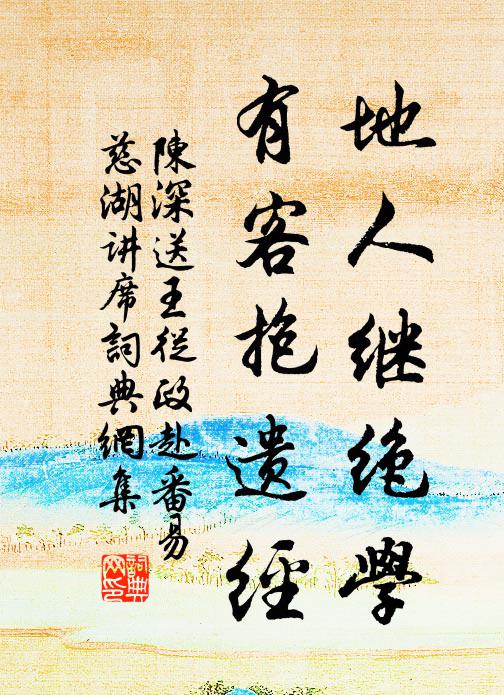 地人继绝學
有客抱遗经
陳深送王從政赴番易
慈湖讲席詞典網集
詞典网印